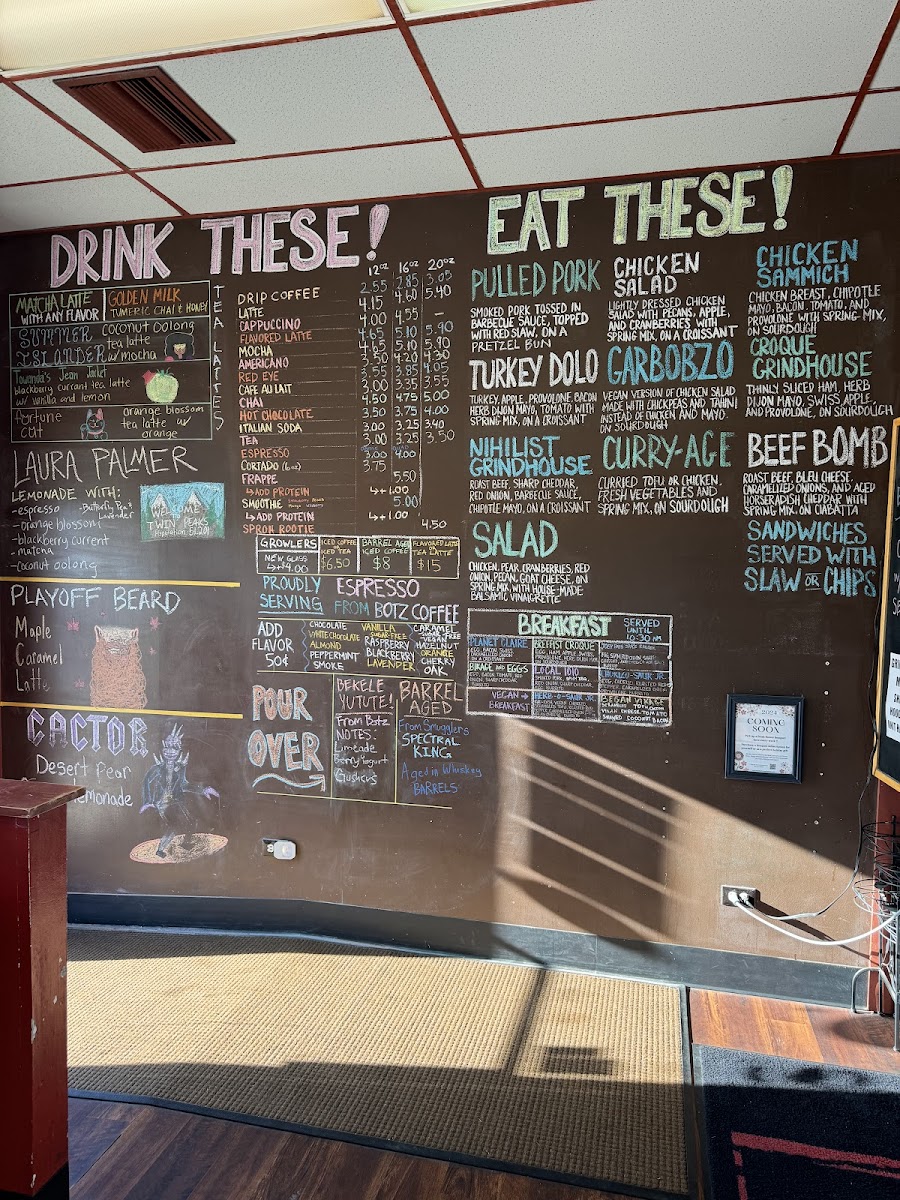 DRINK THESE!
MATCHA LATTE
WITH ANY FLAVOR
GOLDEN MILK
TUMERIC CHAI & HONEY
TEA LATTES
SUMMER coconut oolong
tea latte
ISLANDER w/ mocha
Towanda's Jean Jacket
blackberry currant tea latte
w/ vanilla and lemon
fortune
cat
orange blossom
tea latte w/
orange
LAURA PALMER
LEMONADE WITH:
-espresso
-Butterfly Pea &
Lavender
-orange blossom
-blackberry current
-matcha
-coconut oolong
WELCOME
TO
TWIN PEAKS
Population, 51,201
PLAYOFF BEARD
Maple
Caramel
Latte
CACTOR
Desert Pear
Lemonade
12oz 16oz 20oz
DRIP COFFEE 2.55 2.85 3.05
LATTE 4.15 4.60 5.40
CAPPUCCINO 4.00 4.55 —
FLAVORED LATTE 4.65 5.10 5.90
MOCHA 4.65 5.10 5.90
AMERICANO 3.50 4.20 4.30
RED EYE 3.55 3.85 4.05
CAFE AU LAIT 3.00 3.35 3.55
CHAI 4.50 4.75 5.00
HOT CHOCOLATE 3.50 3.75 4.00
ITALIAN SODA 3.00 3.25 3.40
TEA 3.00 3.25 3.50
ESPRESSO 3.00 4.00
CORTADO (6oz) 3.75
FRAPPE 5.50
↳ADD PROTEIN ↳+1.00
SMOOTHIE 5.00
↳ADD PROTEIN ↳+1.00
SPRON ROOTIE 4.50
GROWLERS
NEW GLASS
↳+$4.00
ICED COFFEE
OR
ICED TEA
$6.50
BARREL AGED
ICED COFFEE
$8
FLAVORED LATTE
OR
TEA LATTE
$15
PROUDLY
SERVING
ESPRESSO
FROM BOTZ COFFEE
ADD
FLAVOR
50¢
CHOCOLATE
WHITE CHOCOLATE
ALMOND
PEPPERMINT
SMOKE
VANILLA
SUGAR-FREE
RASPBERRY
BLACKBERRY
LAVENDER
CARAMEL
SUGAR-FREE
VEGAN
HAZELNUT
ORANGE
CHERRY
OAK
POUR
OVER
BEKELE
YUTUTE!
From Botz
NOTES:
Limeade
Berry Yogurt
Gushers
BARREL
AGED
From Smugglers
SPECTRAL
KING
Aged in Whiskey
BARRELS
EAT THESE!
PULLED PORK
SMOKED PORK TOSSED IN
BARBECUE SAUCE, TOPPED
WITH RED SLAW, ON A
PRETZEL BUN
CHICKEN
SALAD
LIGHTLY DRESSED CHICKEN
SALAD WITH PECANS, APPLE,
AND CRANBERRIES WITH
SPRING MIX, ON A CROISSANT
CHICKEN
SAMMICH
CHICKEN BREAST, CHIPOTLE
MAYO, BACON, TOMATO, AND
PROVOLONE WITH SPRING MIX,
ON SOURDOUGH
TURKEY DOLO
TURKEY, APPLE, PROVOLONE, BACON
HERB DIJON MAYO, TOMATO WITH
SPRING MIX, ON A CROISSANT
GARBOBZO
VEGAN VERSION OF CHICKEN SALAD
MADE WITH CHICKPEAS AND TAHINI
INSTEAD OF CHICKEN AND MAYO.
ON SOURDOUGH
CROQUE
GRINDHOUSE
THINLY SLICED HAM, HERB
DIJON MAYO, SWISS, APPLE,
AND PROVOLONE, ON SOURDOUGH
NIHILIST
GRINDHOUSE
ROAST BEEF, SHARP CHEDDAR,
RED ONION, BARBECUE SAUCE,
CHIPOTLE MAYO, ON A CROISSANT
CURRY-AGE
CURRIED TOFU OR CHICKEN,
FRESH VEGETABLES AND
SPRING MIX, ON SOURDOUGH
BEEF BOMB
ROAST BEEF, BLEU CHEESE,
CARAMELIZED ONIONS, AND AGED
HORSERADISH CHEDDAR WITH
SPRING MIX, ON CIABATTA
SALAD
CHICKEN, PEAR, CRANBERRIES, RED
ONION, PECAN, GOAT CHEESE, ON
SPRING MIX, WITH HOUSE-MADE
BALSAMIC VINAIGRETTE
SANDWICHES
SERVED WITH
SLAW OR CHIPS
BREAKFAST
SERVED
UNTIL
10:30 AM
PLANET CLAIRE
BREKKIST CROQUE
BIRKAE AND EGGS
LOCAL YOLK
VEGAN →
BREAKFAST
COMING
SOON